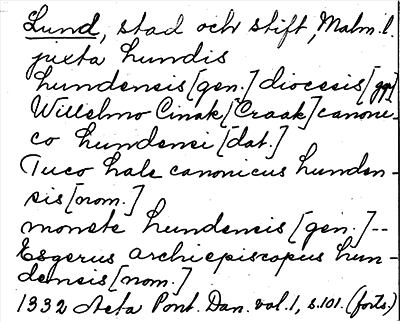 Lund, stad och stift, Malm. l.
juxta Lundis
Lundensis [gen.] diocesis [gen.]
Willelmo Cinak [Craak] canoni-
co Lundensi [dat.]
Tuco hals canonicus Lunden-
sis [nom.]
monete Lundensis [gen.] --
Esgerus archiepiscopus Lun-
densis [nom.]
1332 Acta Pont. Dan. vol. 1, s. 101. (forts.)